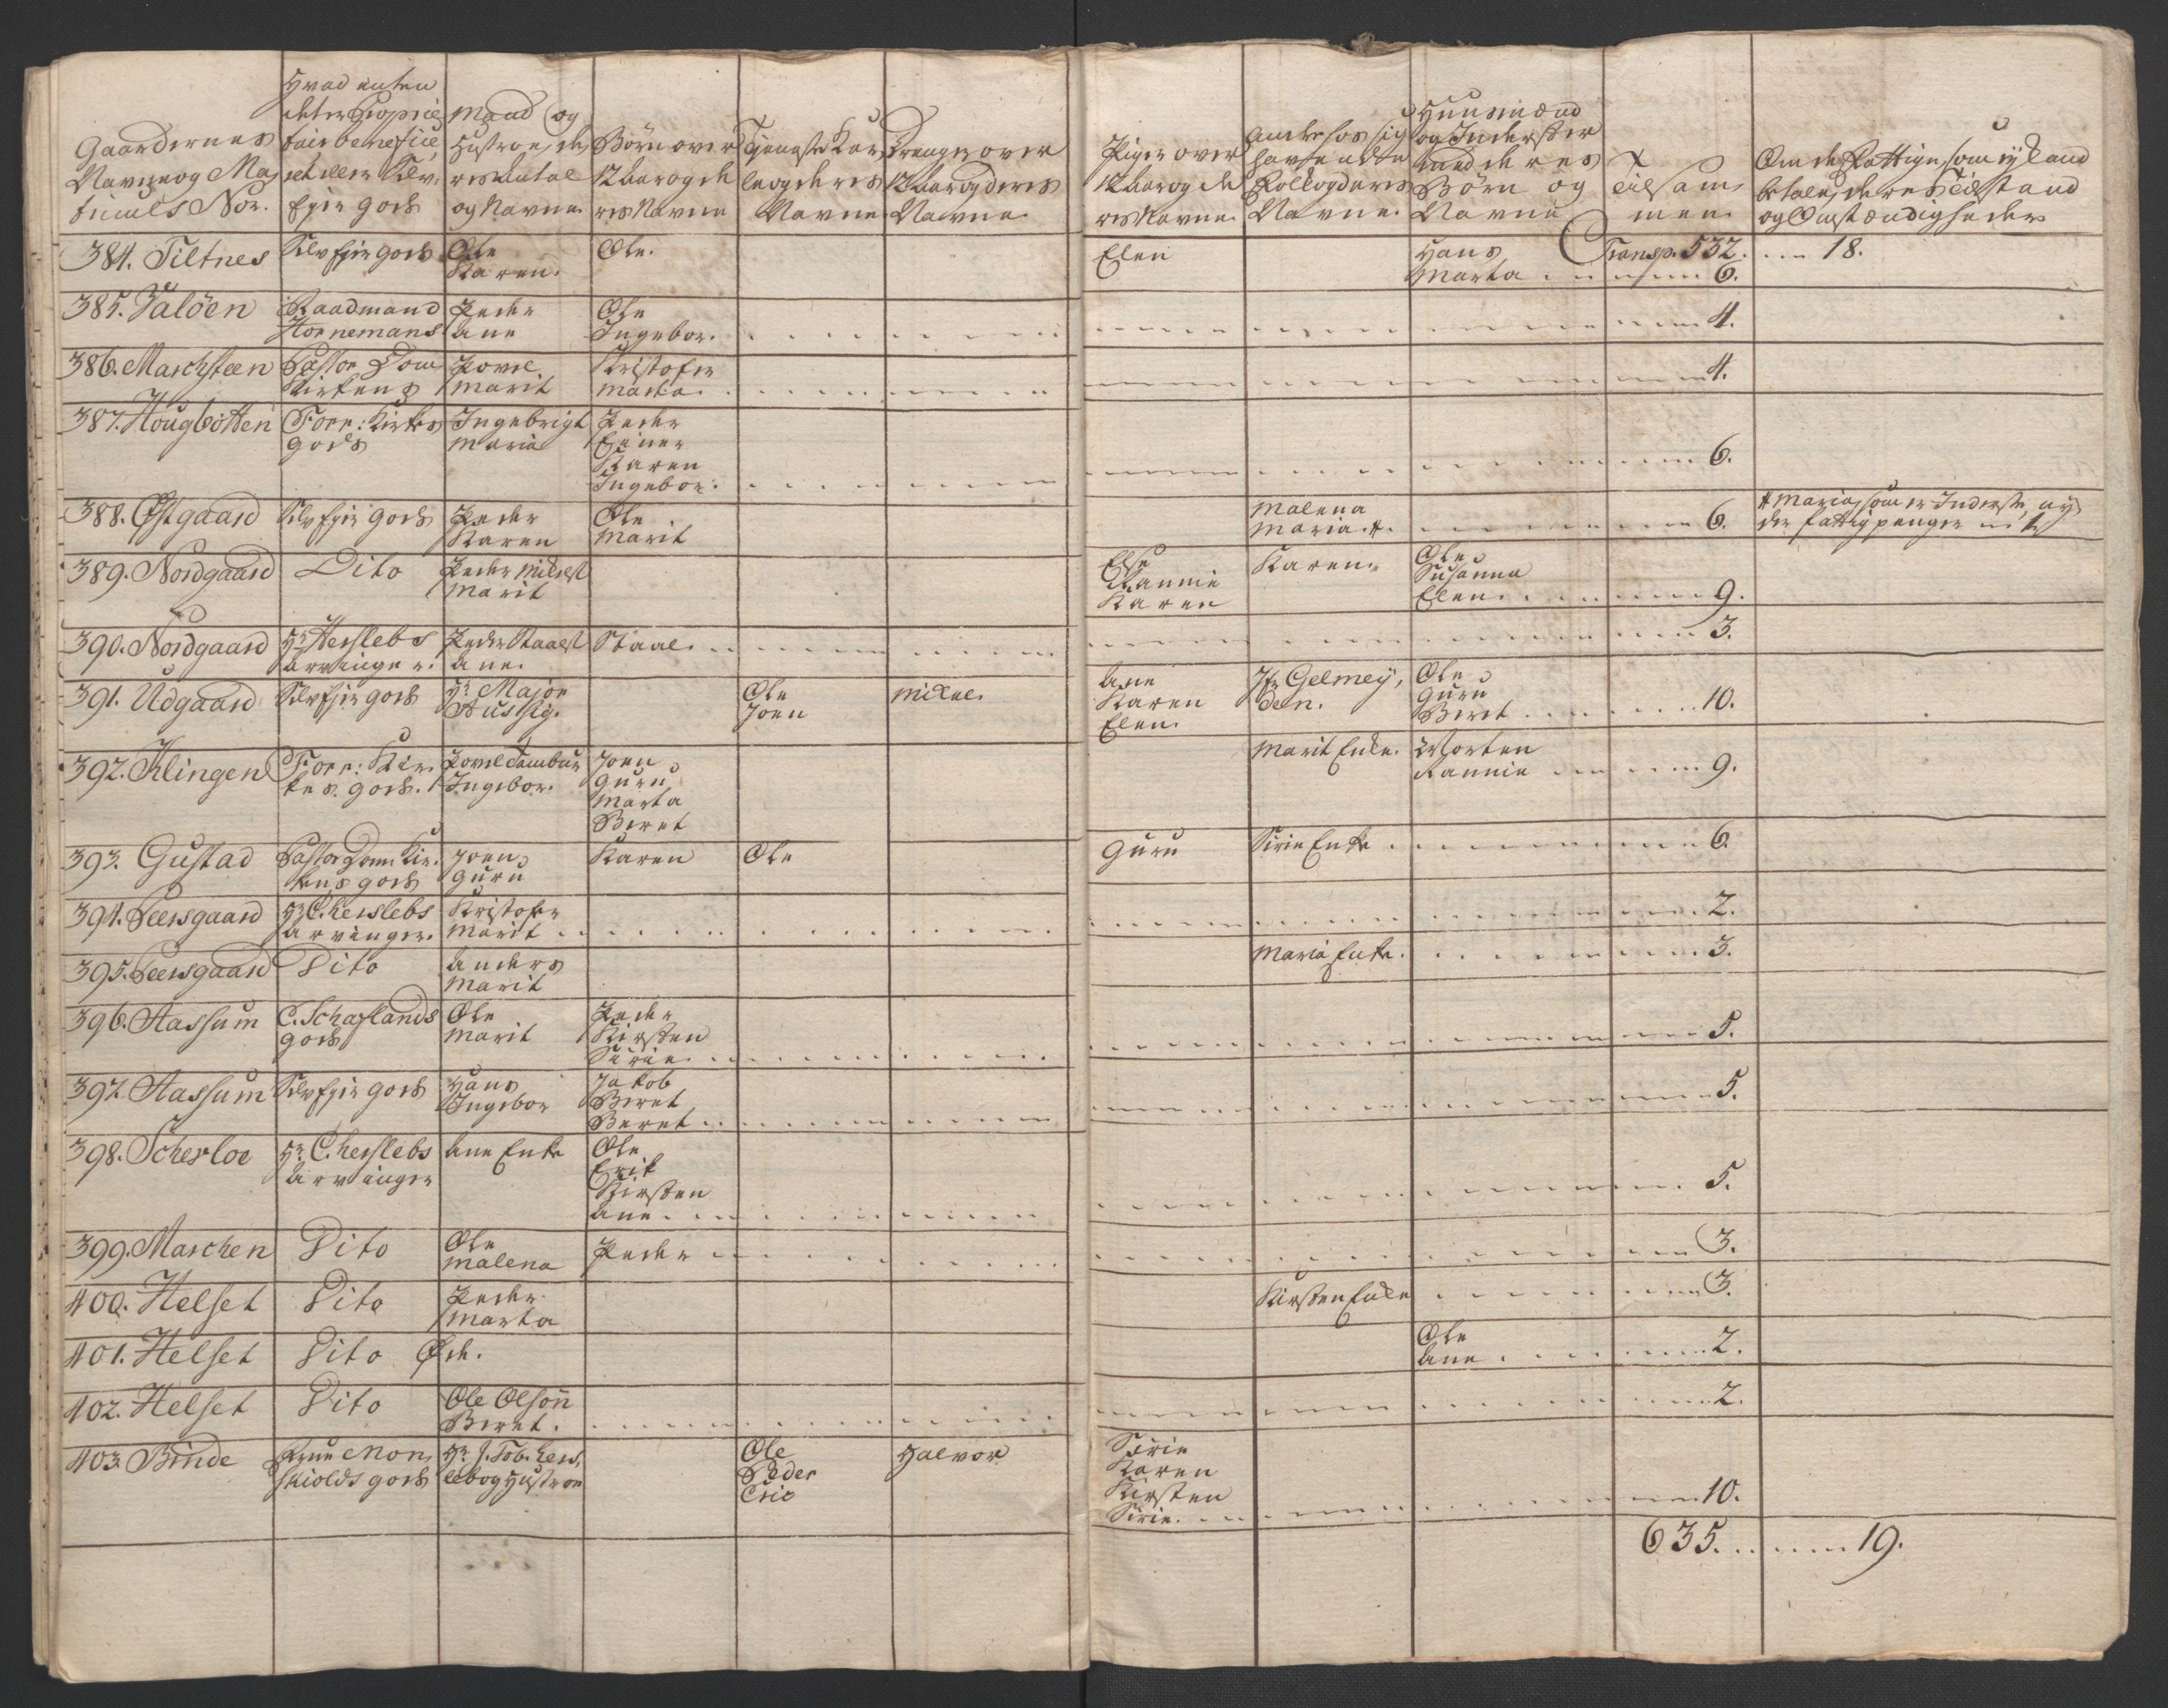 Gaardernes
Navne og Ma,
triculs Nor.
Hvad enten
det er Proprie,
tair beneficie,
ret eller Selv,
Ejer gods
Mand og
Hustroe, de,
res Antal
og Navne.
Børn over
12 Aar og de
res Navne
Tjeneste Kar,
le og deres
Navne.
Drenger over
12 Aar og deres
Navne
Piger over
12 Aar og de
res Navne.
Andre hos sig
havende
Folk og deres
Navne.
Huusmænd
og Inderster
med deres
Børn og
Navne
Tilsam,
men.
Om de Fattige, som ej kand
betale, deres Tilstand
og Omstændigheder
384. Tiltnes
Selv Ejer gods
Ole
Karen.
Ole.
Elen
Hans
Marta
Transp. 532.
6.
18.
385. Valöen
Raadmand
Hornemans
Peder
Ane
Ole
Ingebor.
4.
386. Marchsteen
Pastor Dom
Kirkens
Povel
Marit
Kristofer
Marta.
4.
387. Hougbotten
Forr: Kirkes
gods
Ingebrigt
Maria
Peder
Einer
Karen
Ingebor.
6.
388. Østgaard
Selv Ejer gods
Peder
Karen
Ole
Marit
Malena
Maria
6.
Maria, som er Inderste, ny,
der fattig penger 1
389. Nordgaard
Dito
Peder Mickels
Marit
Else
Rannie
Karen
Karen.
Ole
Susanna
Elen.
9.
390. Nordgaard
Hr Herslebs
Arvinger.
Peder Staals
Ane.
Staal.
3.
391. Udgaard
Selv Ejer gods
Hr Major
Aussig.
Ole
Joen
Mickel
Ane
Karen
Elen.
Jfr Gelmey,
den.
Ole
Guru
Beret
10.
392. Klingen
Forr: Kir
kes gods.
Povel Tambur
Ingebor.
Joen
Guru
Marta
Beret
Marit Enke.
Morten
Rannie
9.
393. Gustad
Pastor Dom Kir.
kens gods
Joen
Guru
Karen
Ole
Guru
Sirie Enke
6.
394. Peersgaard
Hr C. Herslebs
Arvinger.
Kristofer
Marit
2.
395. Peersgaard
Dito
Anders
Marit
Maria Enke.
3.
396. Aassum
C. Schaflands
gods
Ole
Marit
Peder
Kirsten
Sirie.
5.
397. Aassum
Selv Ejer gods
Hans
Ingebor
Jakob
Beret
Beret
5.
398. Scherloe
Hr C. Herslebs
Arvinger
Ane Enke
Ole
Erik
Kirsten
Ane.
5.
399. Marchen
Dito
Ole
Malena
Peder
3.
400. Helset
Dito
Peder
Marta
Kirsten Enke
3.
401. Helset
Dito
Øde.
Ole
Ane.
2.
402. Helset
Dito
Ole Olson
Beret.
2.
403. Binde
Frue Mon,
skiolds gods
Hr J. Tob. Hers,
leb og Hustroe
Ole
Peder
Eric
Halvor
Sirie
Karen
Kirsten
Sirie.
10.
635.
19.